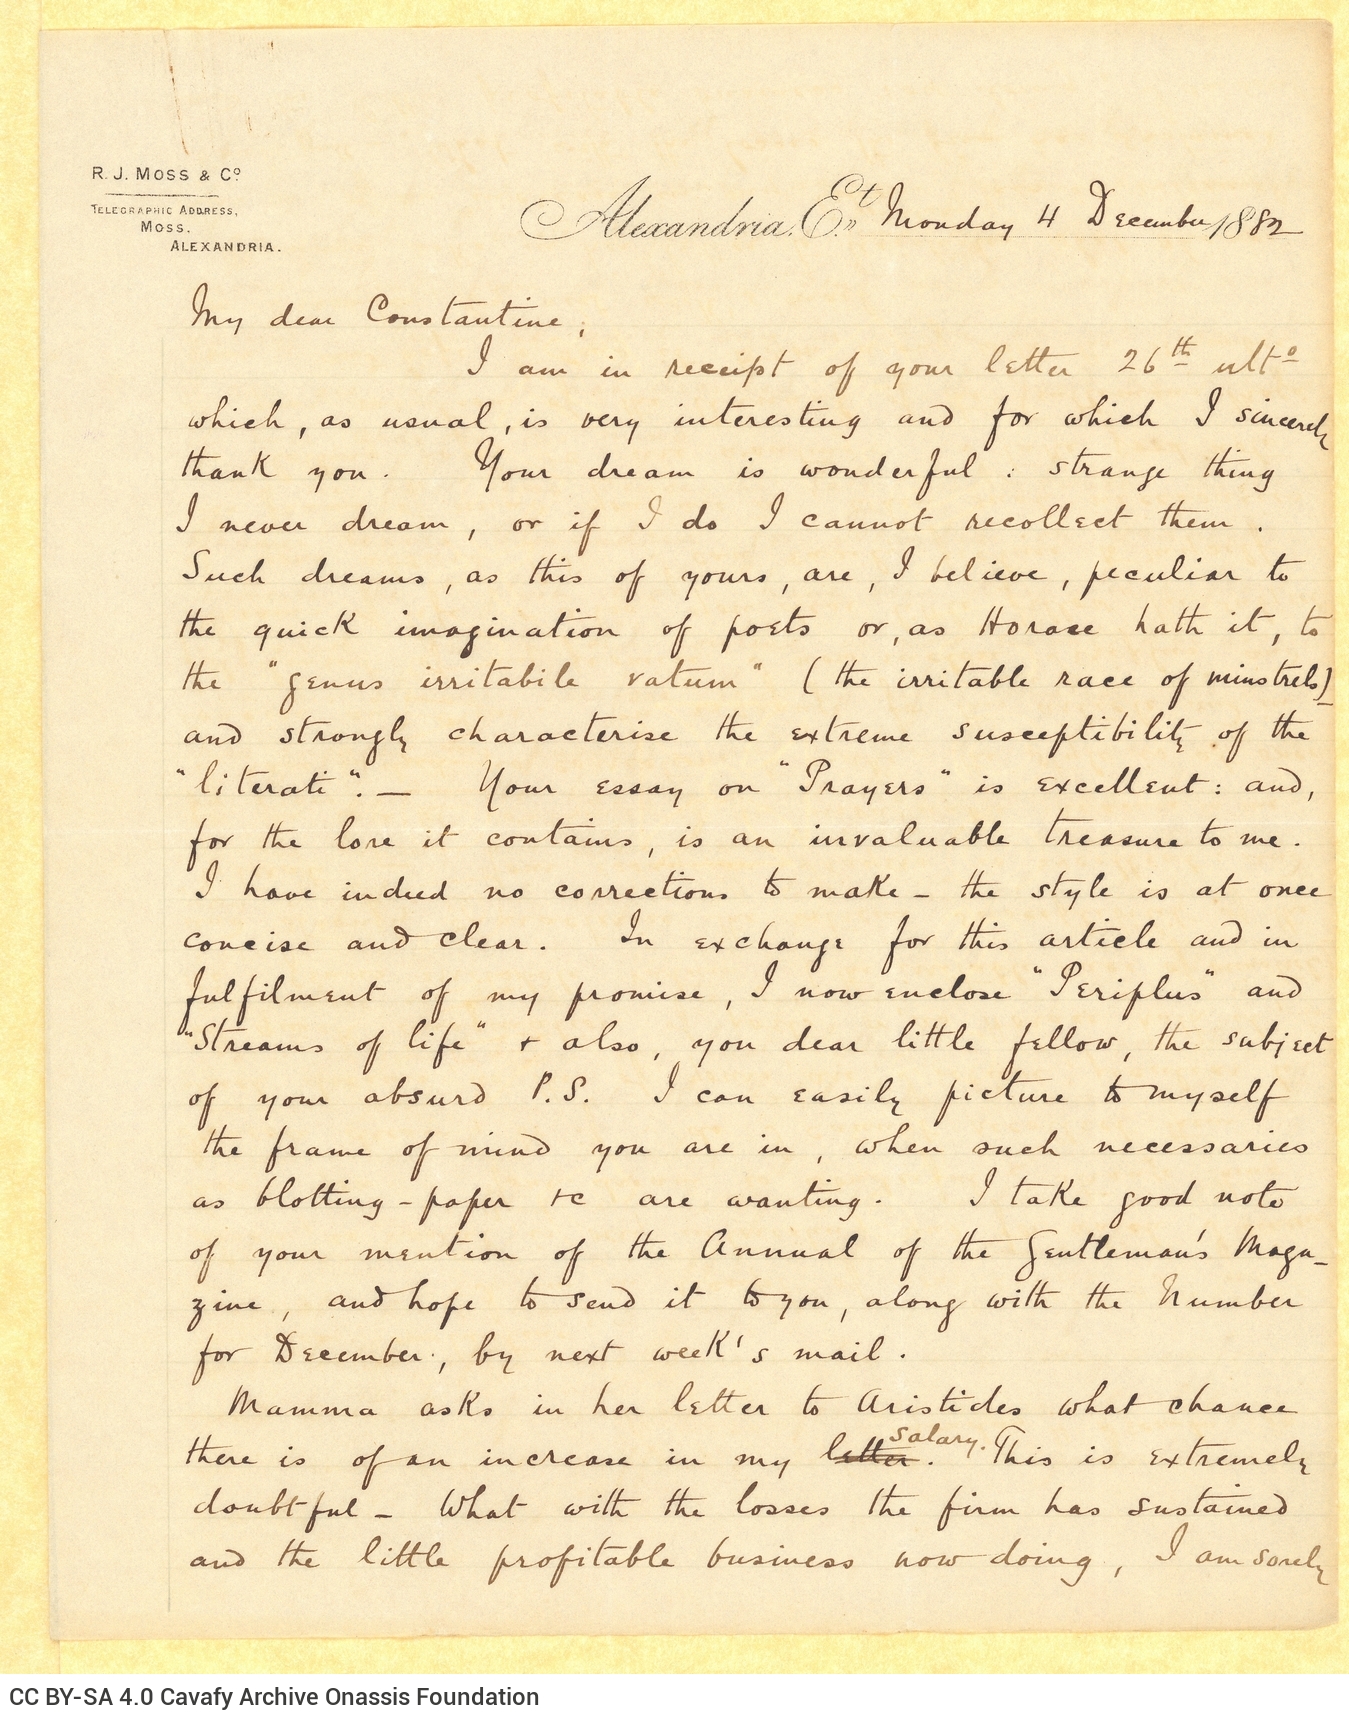 R. J. MOSS & Cº
TELEGRAPHIC ADDRESS,
MOSS.
ALEXANDRIA.
Alexandria, Et., Monday 4 December 1882
My dear Constantine,
I am in receipt of your letter 26th ultº
which, as usual, is very interesting and for which I sincerely
thank you. Your dream is wonderful : strange thing
I never dream, or if I do I cannot recollect them.
Such dreams, as this of yours, are, I believe, peculiar to
the quick imagination of poets or, as Horace hath it, to
the "genus irritabile vatum" (the irritable race of minstrels)
and strongly characterise the extreme susceptibility of the
"literati". — Your essay on "Prayers" is excellent : and,
for the lore it contains, is an invaluable treasure to me.
I have indeed no corrections to make – the style is at once
concise and clear. In exchange for this article and in
fulfilment of my promise, I now enclose "Periplus" and
"Streams of life" + also, you dear little fellow, the subject
of your absurd P.S. I can easily picture to myself
the frame of mind you are in, when such necessaries
as blotting-paper &c are wanting. I take good note
of your mention of the Annual of the Gentleman's Maga-
zine, and hope to send it to you, along with the Number
for December, by next week's mail.
Mamma asks in her letter to Aristides what chance
there is of an increase in my letter salary. This is extremely
doubtful – What with the losses the firm has sustained
and the little profitable business now doing, I am sorely
CC BY-SA 4.0 Cavafy Archive Onassis Foundation